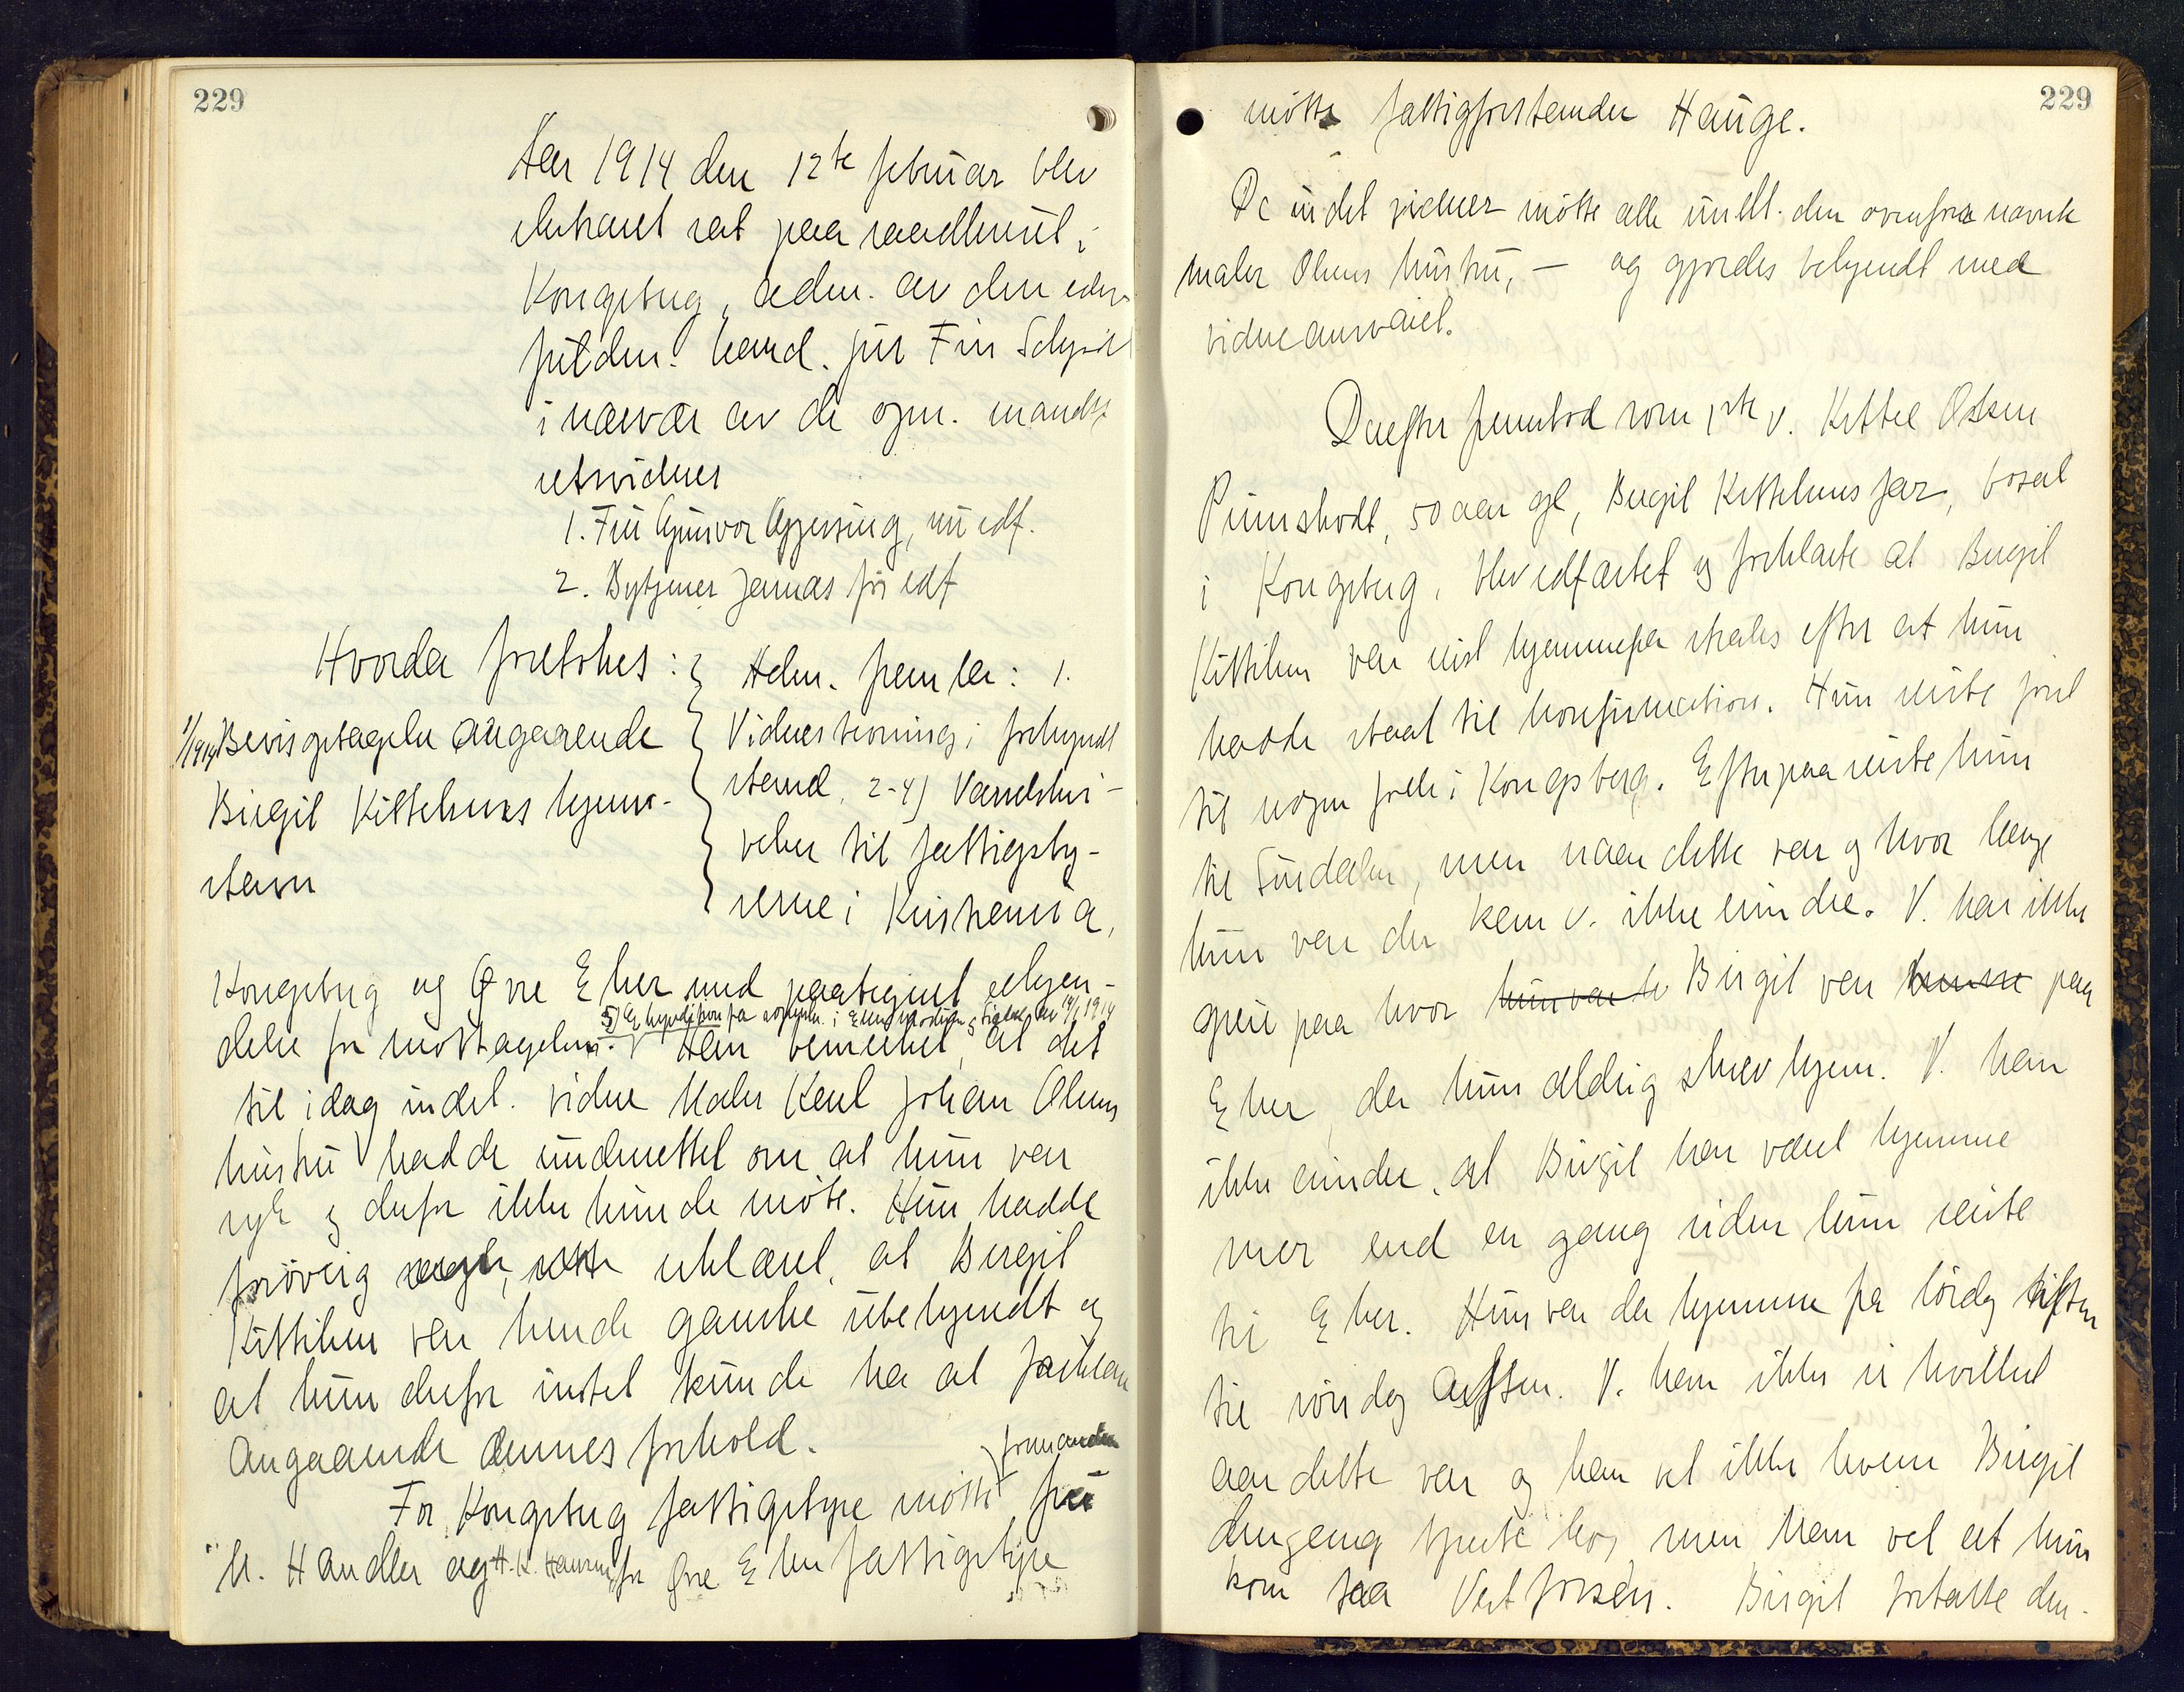 229
Aar 1914 den 12te februar blev
ekstraret sat paa raadhuset i
Kongsberg, adm. av den edsv.
fuldm. cand. jur Finn
i nærvær av de opn. mands
retsvidner
1. Fru Gunvor Gjessing, nu edf.
2. Bytjener Jonnas før edf
Hvorda foretokes:
1/1914 Bevisoptagelse angaaende
Birgit Kittelsens hjem-
stavn
Adm. fremla: 1.
Vidnestevning i forkyndt
stand. 2-4) Varselskri-
velser til fattigsty-
rerne i Kristiania,
Kongsberg og Øvre Eker med paategnet erkjen-
delse for mottagelsen.
5) Ekspedition fra sorenskr. i Eker, Modum og Sigdal av 19/1 1914
Han bemerket, at det
til idag indst. vidne Maler Karl Johan Olsens
hustru hadde underrettet om at hun var
syk og derfor ikke kunde møte. Hun hadde
forøvrig erklæret, at Birgit
Kittilsen var hende ganske ubekjendt og
at hun derfor intet kunde ha at forklare
angaaende dennes forhold.
For Kongsberg fattigstyre møtte formanden fru
M. Handler og H. K. Hansen, for Øvre Eker fattigstyre
229
møtte fattigforstander Hauge.
De indst vidner møtte alle undt. den ovenfor nævnte
maler Olsens hustru, – og gjordes bekjendt med
vidneansvaret.
Derefter fremstod som 1ste v. Kittel Olsen
Punershodt, 50 aar gl, Birgit Kittelsens far, bosat
i Kongsberg, blev edfæstet og forklarte at Birgit
Kittilsen var reist hjemmefra straks efter at hun
hadde staat til konfirmation. Hun reiste først
til nogen folk i Kongsberg. Efterpaa reiste hun
til Numedalen, men naar dette var og hvor længe
hun var der kan v. ikke erindre. V. har ikke
greie paa hvor hun var da Birgit var kusse paa
Eker, da hun aldrig skrev hjem. V. kan
ikke erindre, at Birgit har været hjemme
mer end en gang siden hun reiste
til Eker. Hun var da hjemme fra lørdag aften
til søndag aften. V. kan ikke si hvilket
aar dette var og kan vel ikke hvem Birgit
dengang tjente hos men kan vel at hun
kom fra Vestfossen. Birgit fortalte den-